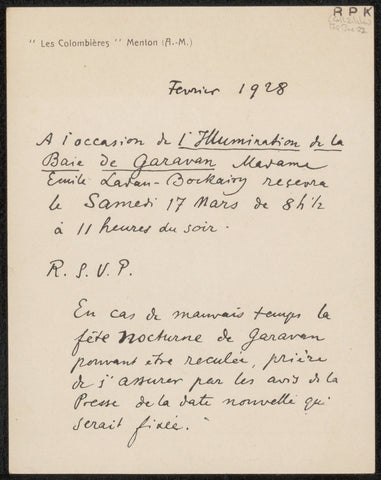 R P K
" Les Colombières " Menton (A.-M.)
Fevrier 1928
A l'occasion de l'Illumination de la
Baie de Garavan Madame
Emile Ladan-Bockairy recevra
le Samedi 17 Mars de 8h½
à 11 heures du soir.
R. S. V. P.
En cas de mauvais temps la
fête nocturne de Garavan
pouvant être reculée, prière
de s'assurer par les avis de la
Presse de la date nouvelle qui
serait fixée.